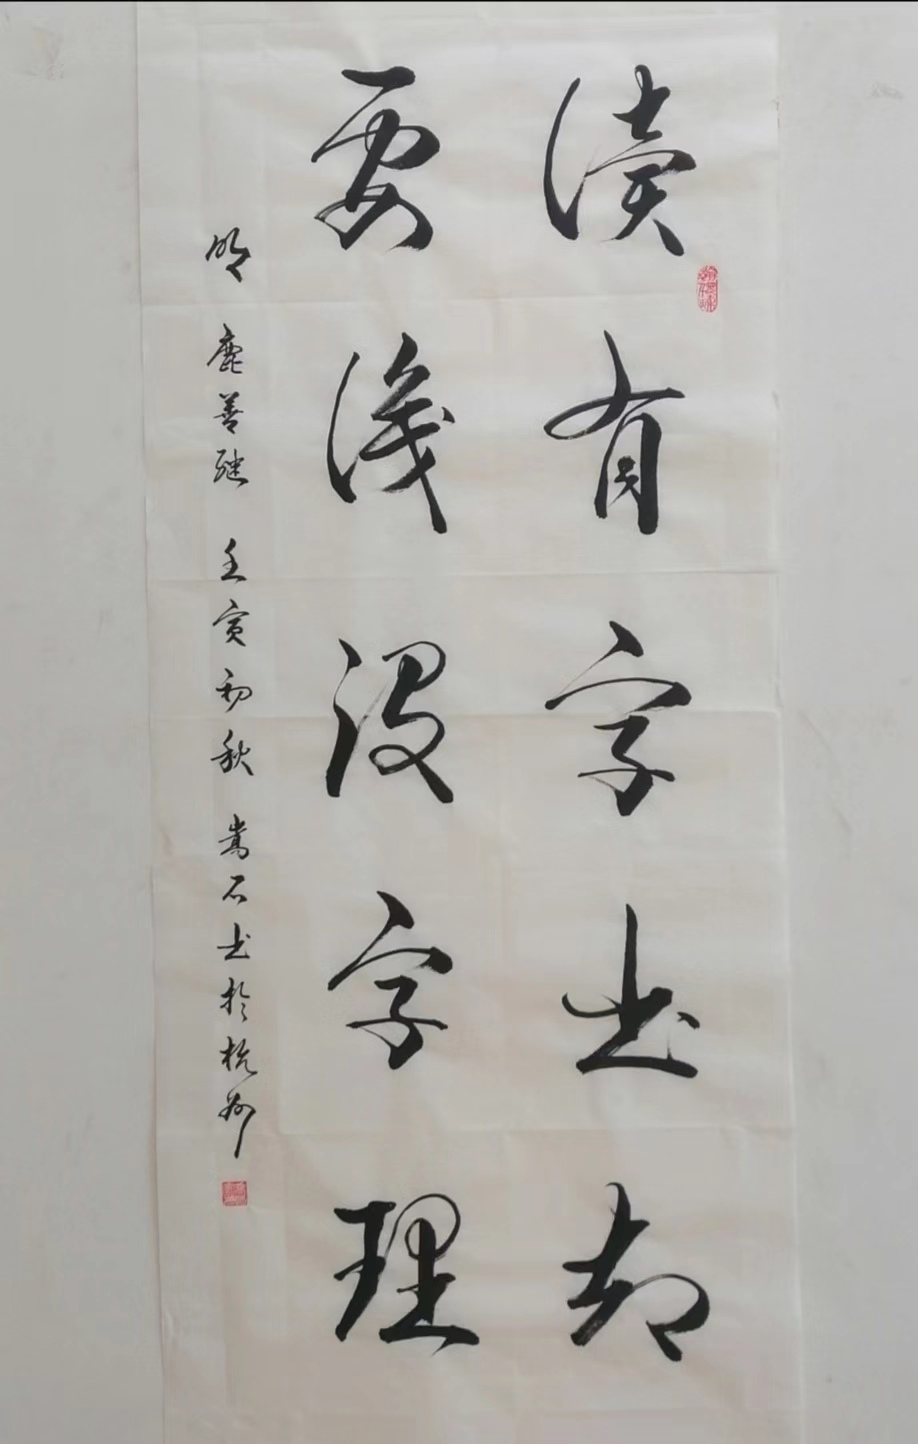 读有字书却
要识没字理
明 鹿善继 壬寅初秋 嵩石书於杭州